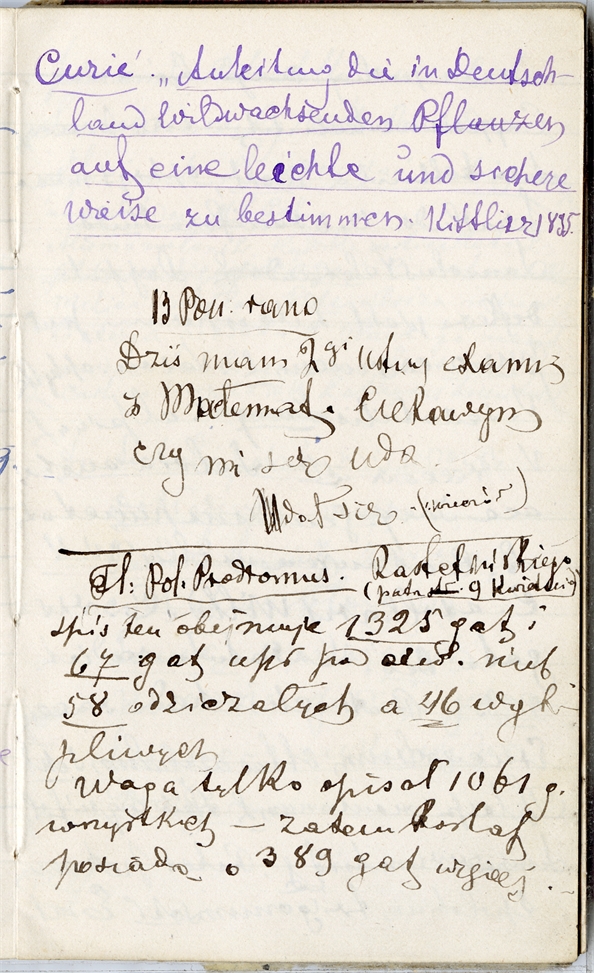 Curie. „Anleitung die in Deutsch-
land wildwachsenden Pflanzen
auf eine leichte und sichere
Weise zu bestimmen. Kittlitz 1835.
13 Pon. rano
Dziś mam 2gi ustny examin
z Matemat. Ciekawym
czy mi się uda.
Udał się – (wieczór)
Fl. Pol. Prodromus. Rostafińskiego
(patrz 9 Kwietnia)
spis ten obejmuje 1325 gat i
67 gat
58 odziczałych a 46 wątp-
pliwych
Waga tylko opisał 1061 g.
wszystkich – zatem Rostaf
posiada o 389 gat więcej.